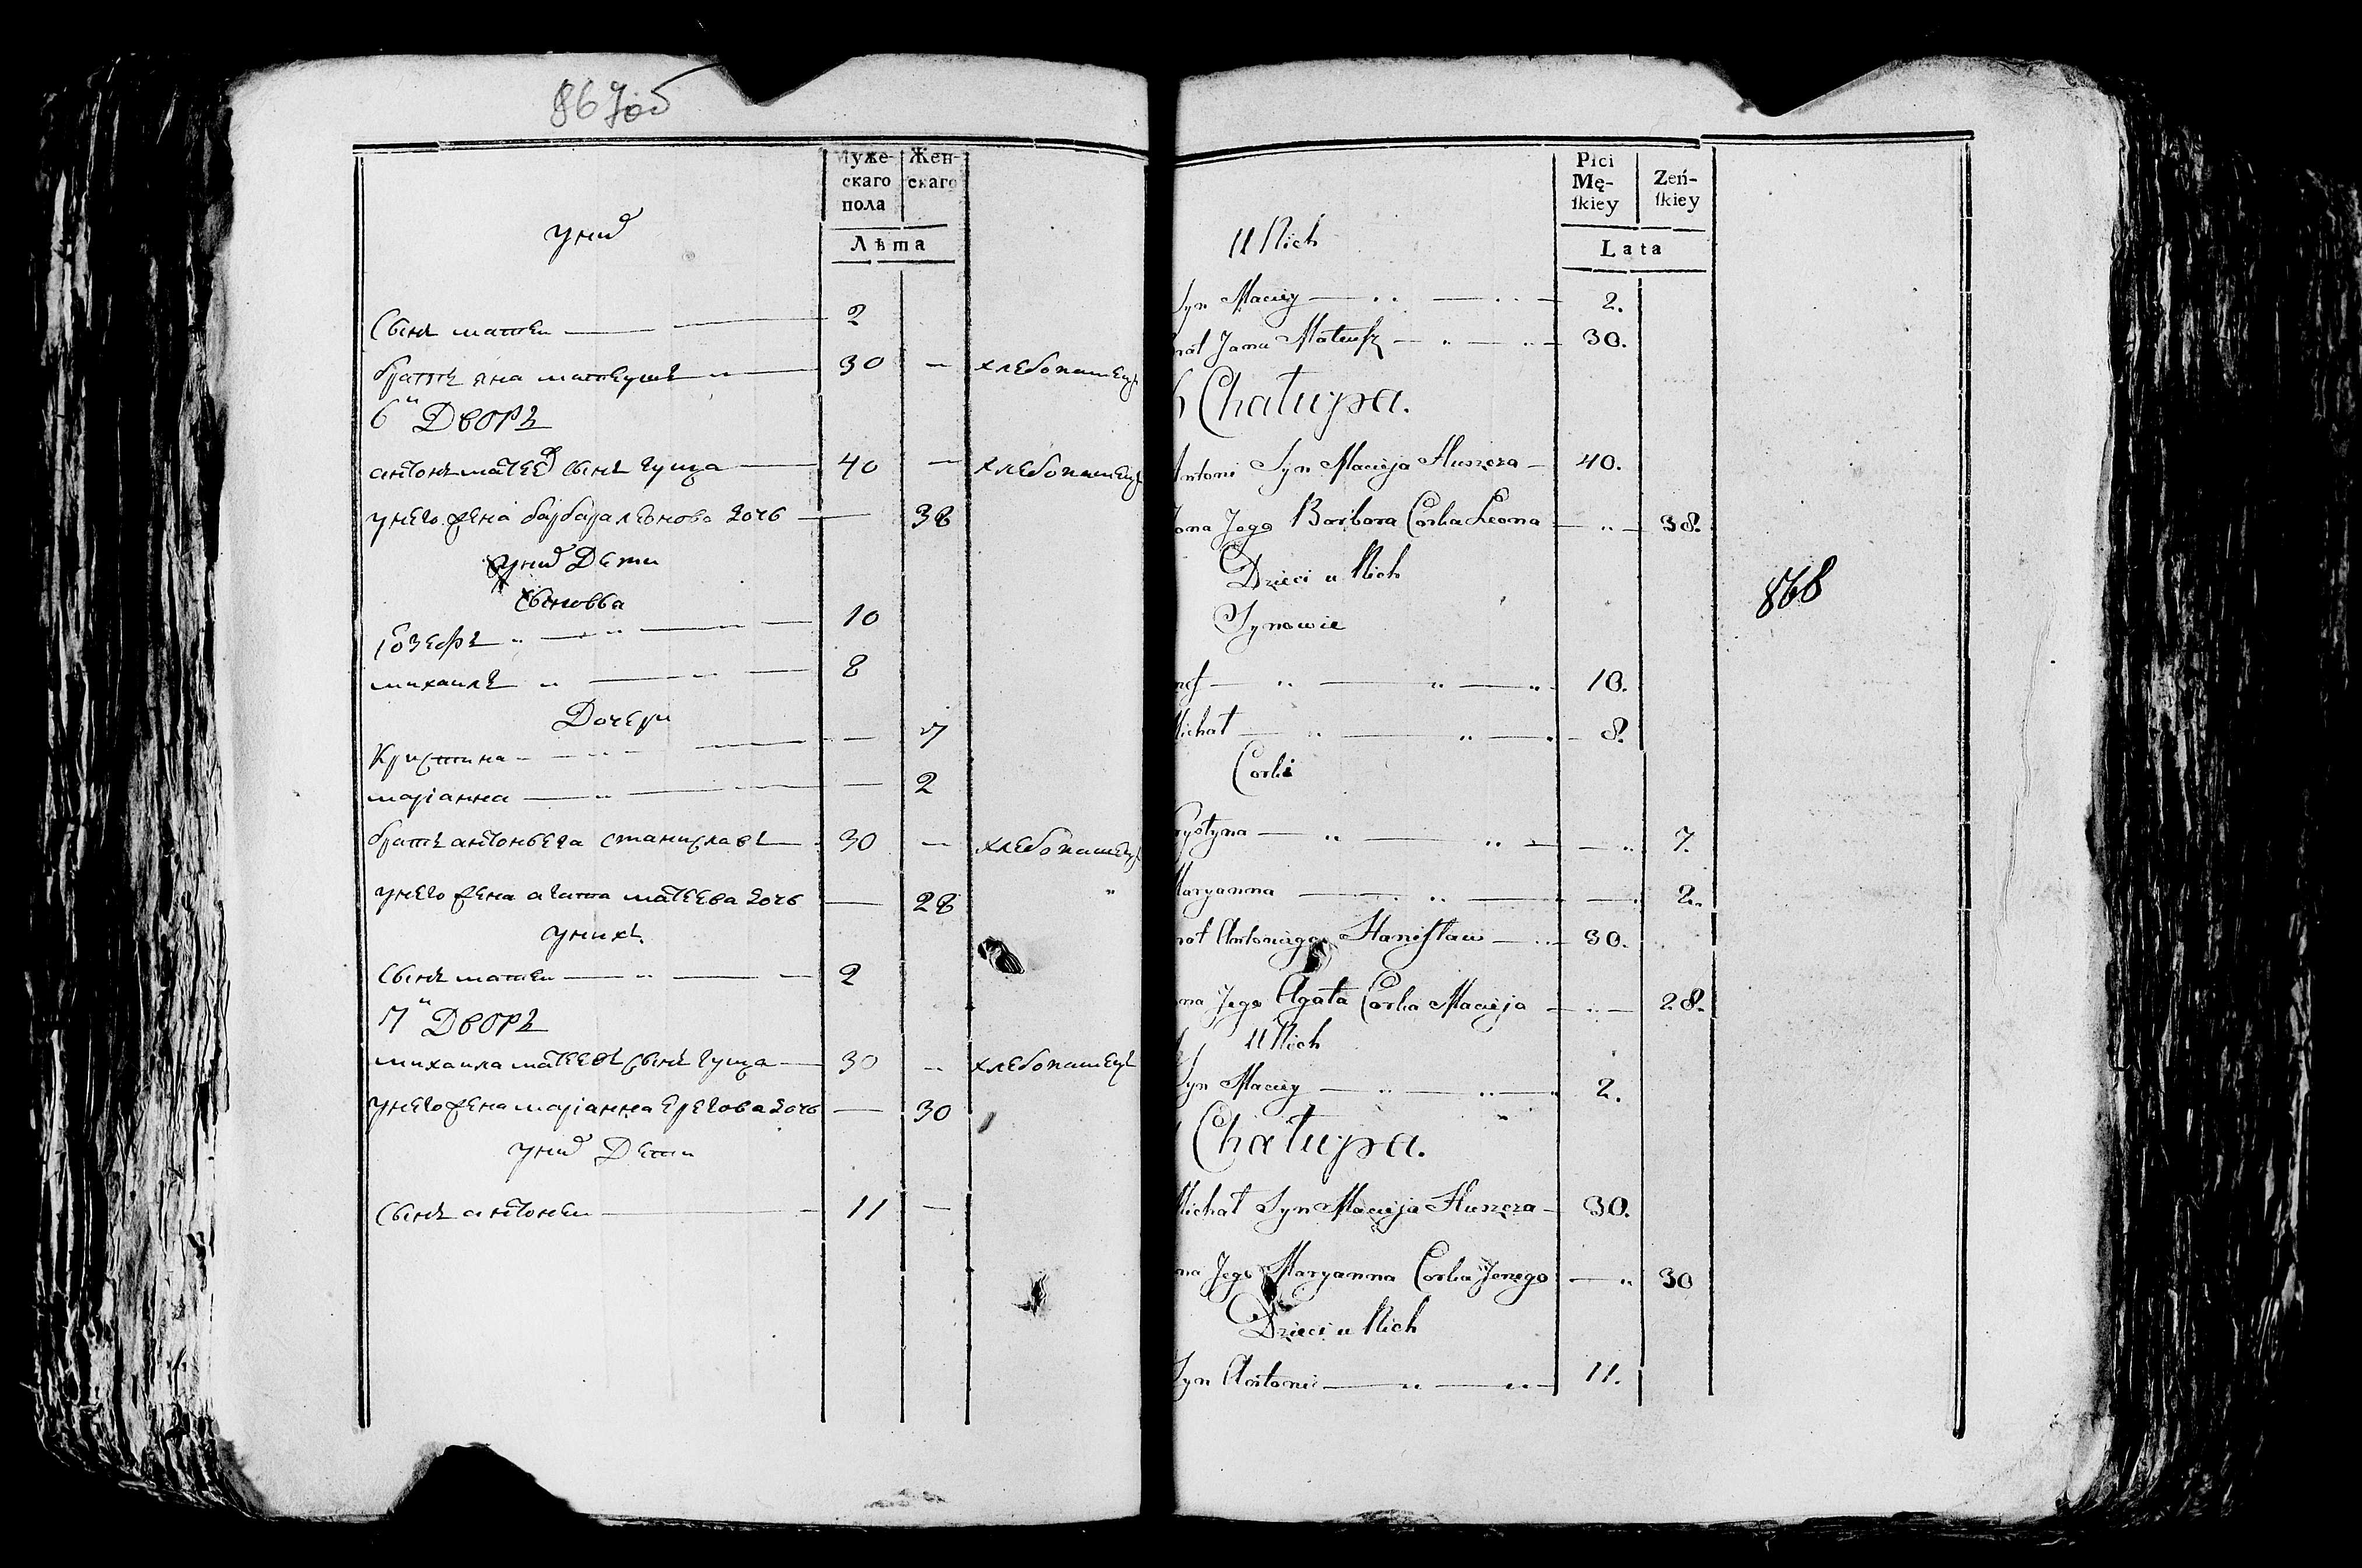 867об
Муже-
скаго
пола
Жен-
скаго
Лѣта
у них
Сынъ матеи 2
братъ яна матеушъ 30 — хлебопашецъ
6й Дворъ
антонъ матеев сынъ гуща 40 — хлебопашецъ
у него жена барбара леонова дочь — 38
у них Дети
Сыновьа
Иозефъ 10
михаилъ 8
Дочери
Кристина — 7
маріанна — 2
братъ антоньега станиславъ 30 — хлебопашецъ
у него жена агата матеева дочь — 28
у нихъ
Сынъ матеи 2
7й Дворъ
михаила матеевъ сынъ гуща 30 хлебопашецъ
у него жена маріанна ерегова дочь — 30
у них Дети
Сынъ антонеи 11 —
Płci
Mę-
ſkiey
Zeń-
ſkiey
Lata
U Nich
Syn Maciey 2.
rat Jana Mateuſz 30.
6 Chałupa.
Antoni Syn Macieja Huszcza 40.
ona Jego Barbara Corka Leona 38.
Dzieci u Nich
Synowie
zef 10.
Michał 8.
Corki
rystyna 7.
Maryanna 2.
rat Antoniego Staniſław 30.
na Jego Agata Corka Macieja 28.
U Nich
Syn Maciey 2.
Chałupa.
Michał Syn Macieja Huszcza 30.
na Jego Maryanna Corka Jerzego 30
Dzieci u Nich
Syn Antoni 11.
868